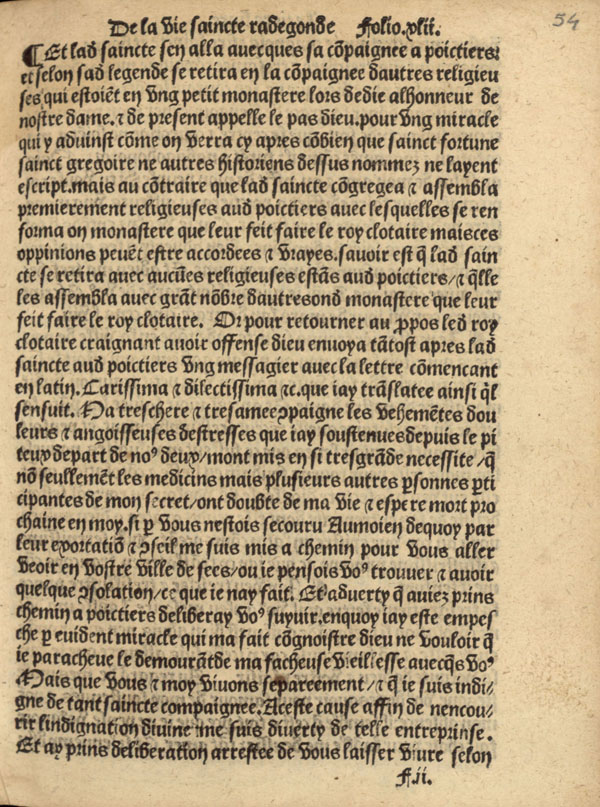 De la vie saincte radegonde Folio.xlii.
54
¶Et lad̄ saincte sen alla avecques sa cõpaignee a poictiers:
et selon sad̄ legende se retira en la cõpaignee dautres religieu
ses qui estoiẽt en vng petit monastere lors dedie alhonneur de
nostre dame. ⁊ de present appelle le pas dieu. pour vng miracle
qui y aduinst cõme on verra cy apres cõbien que sainct fortune
sainct gregoire ne autres historiens dessus nommez ne layent
escript. mais au cõtraire que lad̄ saincte cõgregea ⁊ assembla
premierement religieuses aud̄ poictiers avec lesquelles se ren
forma on monastere que leur feit faire le roy clotaire mais ces
oppinions peuẽt estre accordees ⁊ vrayes. savoir est q̃ lad̄ sain
cte se retira avec aucũes religieuses estãs aud̄ poictiers/ ⁊ q̃lle
les assembla avec grãt nõbre dautres ond̄ monastere que leur
feit faire le roy clotaire. Or pour retourner au ꝓpos led̄ roy
clotaire craignant avoir offense dieu enuoya tãtost apres lad̄
saincte aud̄ poictiers vng messagier avec la lettre cõmencant
en latin. Carissima ⁊ dilectissima ⁊c. que iay trãslatee ainsi q̃l
sensuit. Ma treschere ⁊ tresamee ꝯpaigne les vehemẽtes dou
leurs ⁊ angoisseuses destresses que iay soustenues depuis le pi
teux depart de noꝰ deux/ mont mis en si tresgrãde necessite/ q̃
nõ seullemẽt les medicins mais plusieurs autres ꝑsonnes ꝑti
cipantes de mon secret/ ont doubte de ma vie ⁊ espere mort pro
chaine en moy. si ꝑ vous nestois secouru Aumoien dequoy par
leur exportatiõ ⁊ ꝯseil me suis mis a chemin pour vous aller
veoir en vostre ville de sees/ ou ie pensois voꝰ trouver ⁊ avoir
quelque ꝯsolation/ ce que ie nay fait. Et aduerty q̃ auiez prins
chemin a poictiers deliberay voꝰ suyuir. enquoy iay este empes
che ꝑ euident miracle qui ma fait cõgnoistre dieu ne vouloir q̃
ie paracheve le demourãt de ma facheuse vieillesse avecq̃s voꝰ
Mais que vous ⁊ moy vivons separeement/ ⁊ q̃ ie suis indi/
gne de tant saincte compaignee. A ceste cause affin de nencou/
rir lindignation divine me suis diverty de telle entreprinse.
Et ay prins deliberation arrestee de vous laisser vivre selon
F.ii.